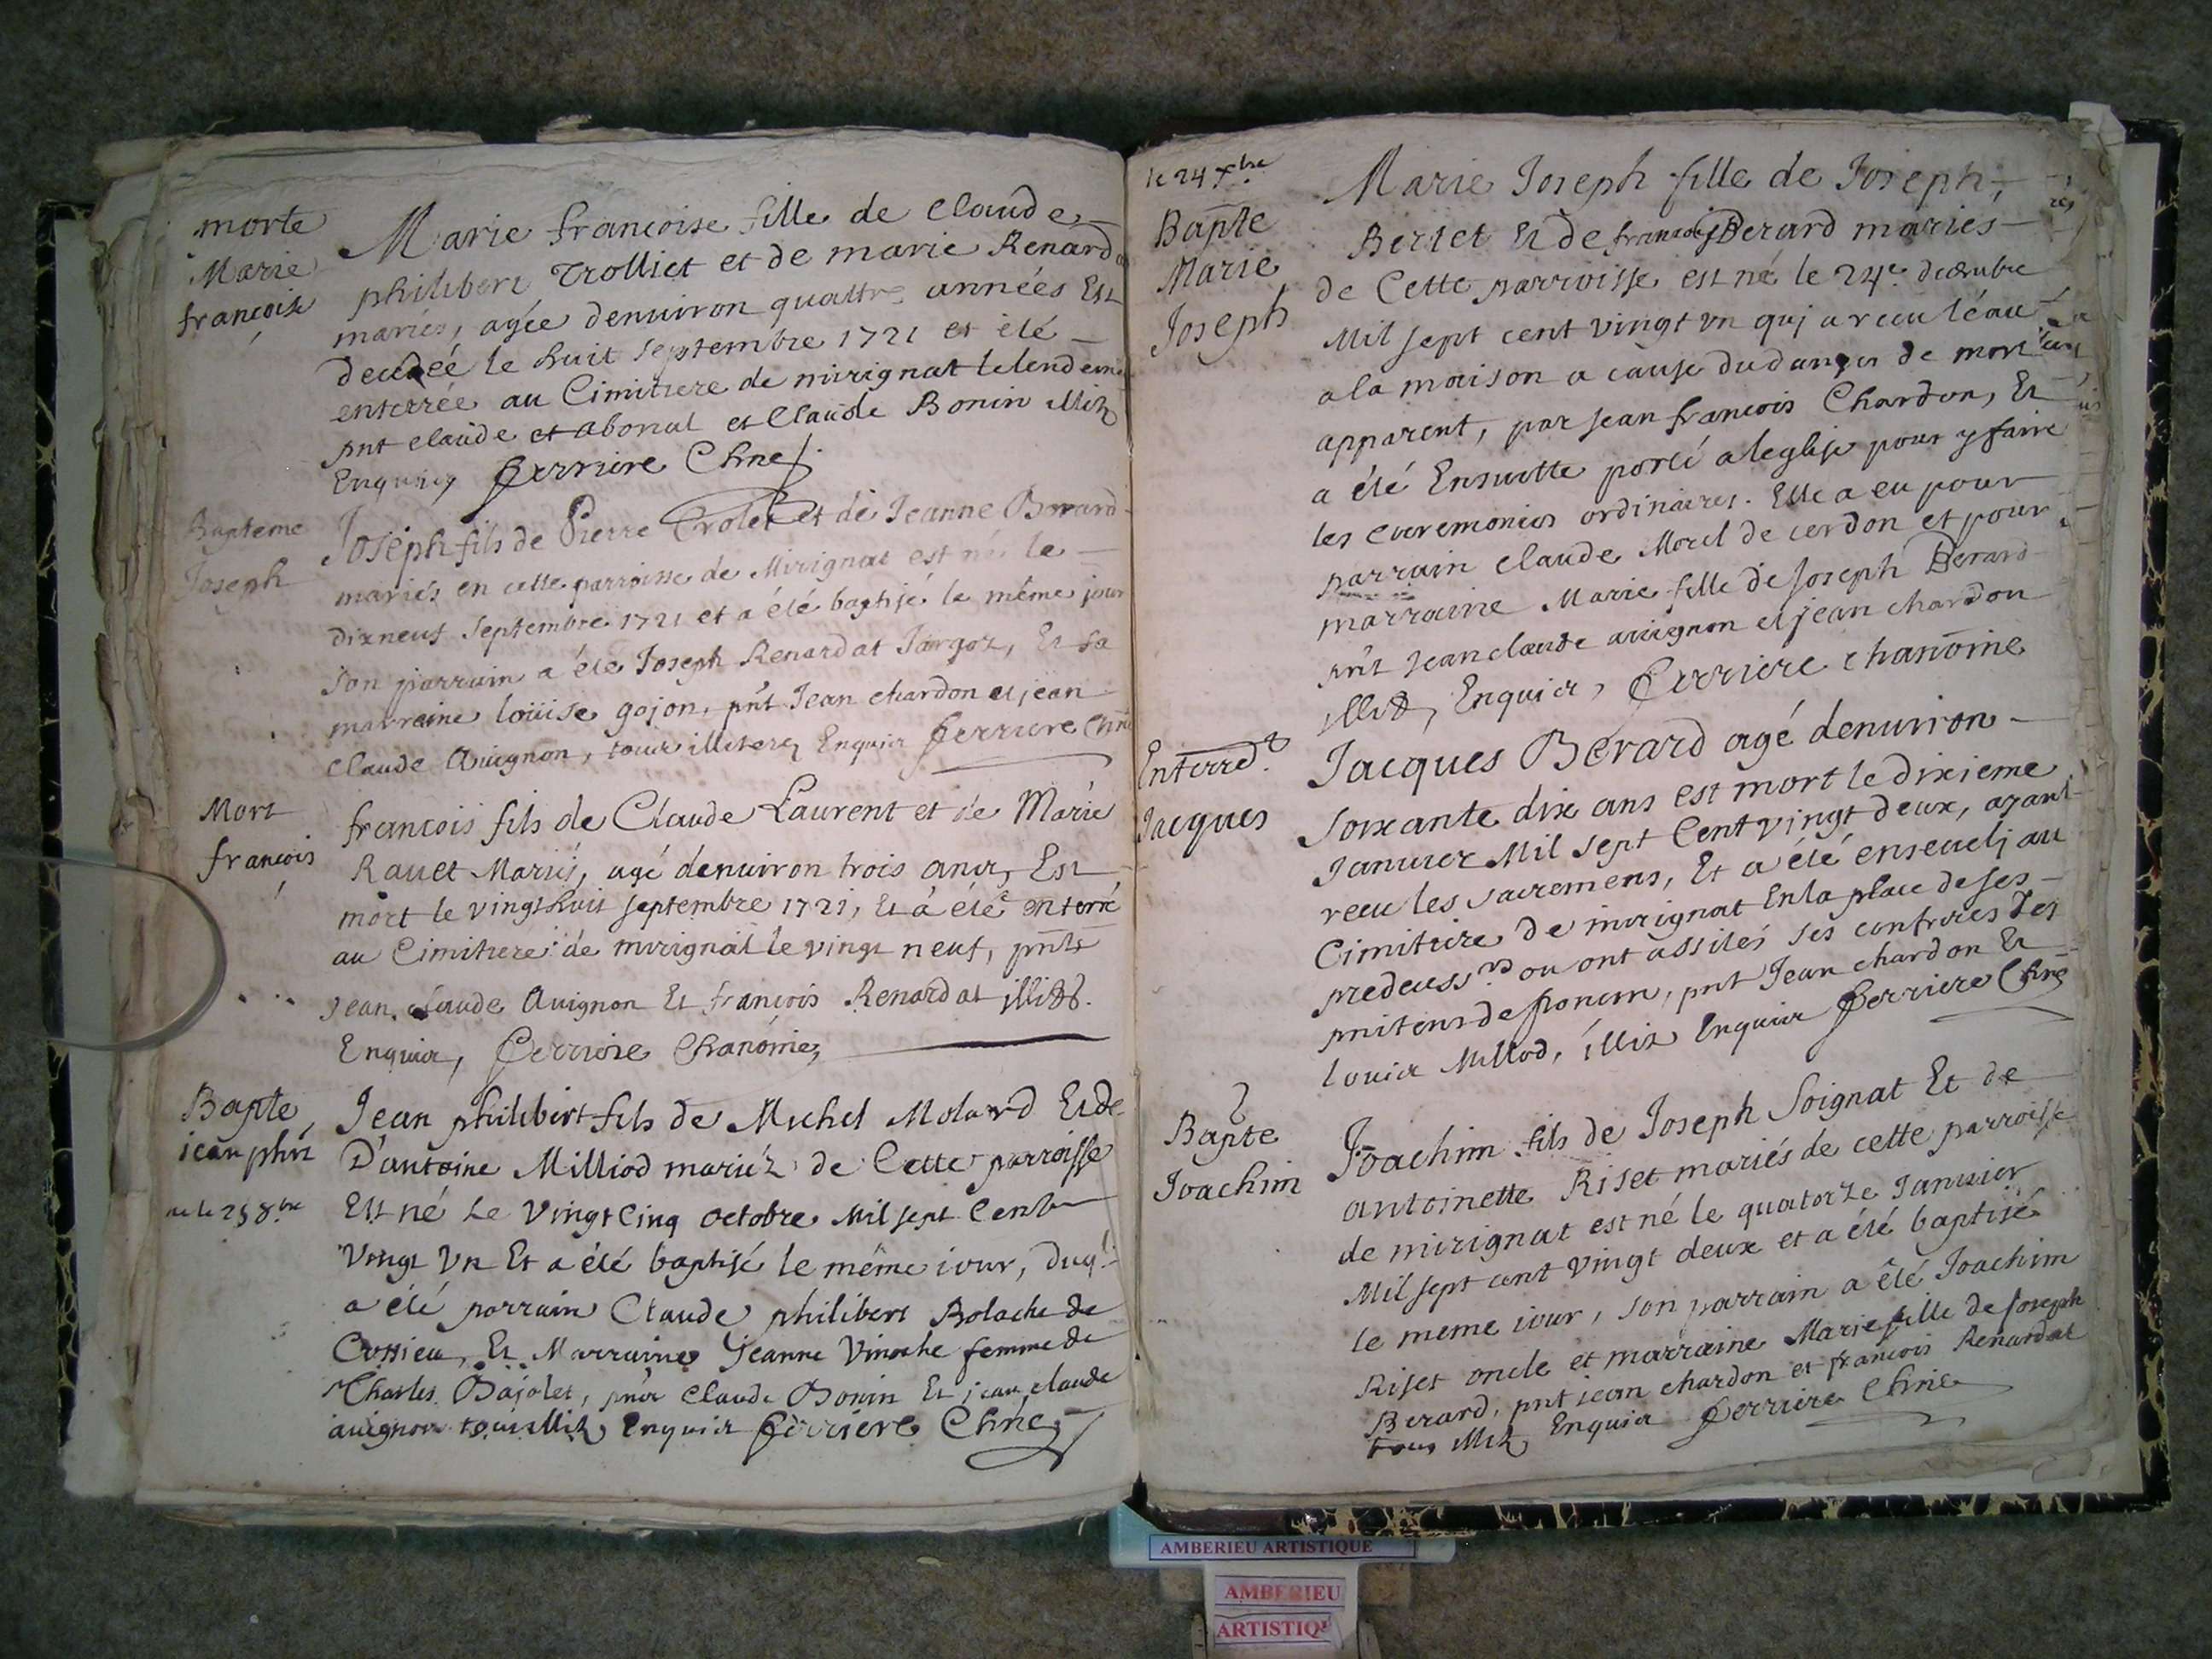 morte
Marie
francoise
Marie francoise fille de Claude
philibert Trolliet et de marie Renard
mariés, agée denuiron quattre années Est
decedeé le huit septembre 1721 et été
enterrée au Cimitiere de mirignat lelendem
pnt claude et abonal et Claude Bonin illit
Enquis, ferriere Chne
Bapteme
Joseph
Joseph fils de Pierre Trolet et de Jeanne Berard
mariés en cette parroisse de Mirignat est né le
dixneuf Septembre 1721 et a été baptisé le même jour
son parrain a été Joseph Renardat Jargoz, Et sa
marraine loüise gojon, pnt Jean chardon et jean
claude Auignon, tous illiteres Enquis ferriere Chne
Mort
francois
francois fils de Claude Laurent et de Marie
Rauet Mariés, agé denuiron trois ans, Est
mort le vingt huit septembre 1721, Et a été enterré
au Cimitiere de mirignat le vingt neuf, pnts
Jean Claude Auignon Et francois Renardat illitt.
Enquis, ferriere Chanôine,
Bapte
jean phrt
ne le 25 8.bre
Jean philibert fils de Michel Molard Et de
D'antoine Milliod mariéz de Cette parroisse
Est né Le Vingt Cinq octobre Mil sept Cent
Vingt Un Et a été baptisé le même iour, duql
a été parrain Claude philibert Bolache de
Cossieu, Et Marraine Jeanne Vinoche femme de
Charles Bajolet, pnts Claude Bonin Et jean claude
auignon tous illit, Enquis ferriere Chne
le 24 xbre
Bapte
Marie
Joseph
Marie Joseph fille de Joseph
Berlet Et de francoise Berard mariés
de Cette parroisse est né le 24e. decembre
Mil sept cent vingt un quj a recu léau
a la maison a cause du danger de mort
apparent, par Jean francois Chardon, Et
a été Ensuitte porté a leglise pour y faire
les ceremonies ordinaires. Elle a eu pour
parrain claude Morel de cerdon et pour
marraine Marie fille de Joseph Berard
pnt Jean claude auignon et jean chardon
illit, Enquis, ferriere chanoine
Enterredt
Jacques
Jacques Berard agé denuiron
Soixante dix ans est mort le dixieme
Januier Mil Sept Cent vingt deux, ayant
receu les sacremens, Et a été enseuelj au
Cimitiere de mirignat En la place de ses
predecessrs ou ont assités ses confreres des
pnitens de poncin, pnt Jean chardon Et
louis Millod, illit Enquis ferriere Chne
Bapte
Joachim
Joachim fils de Joseph Soignat Et de
antoinette Riset mariés de cette parroisse
de mirignat est né le quatorze Januier
Mil sept cent vingt deux et a été baptisé
le meme iour, son parrain a êté Joachim
Riset oncle et marraine Marie fille de Joseph
Berard, pnt jean chardon et francois Renardat
tous illit Enquis ferriere Chne
AMBERIEU ARTISTIQUE
AMBERIEU
ARTISTIQU